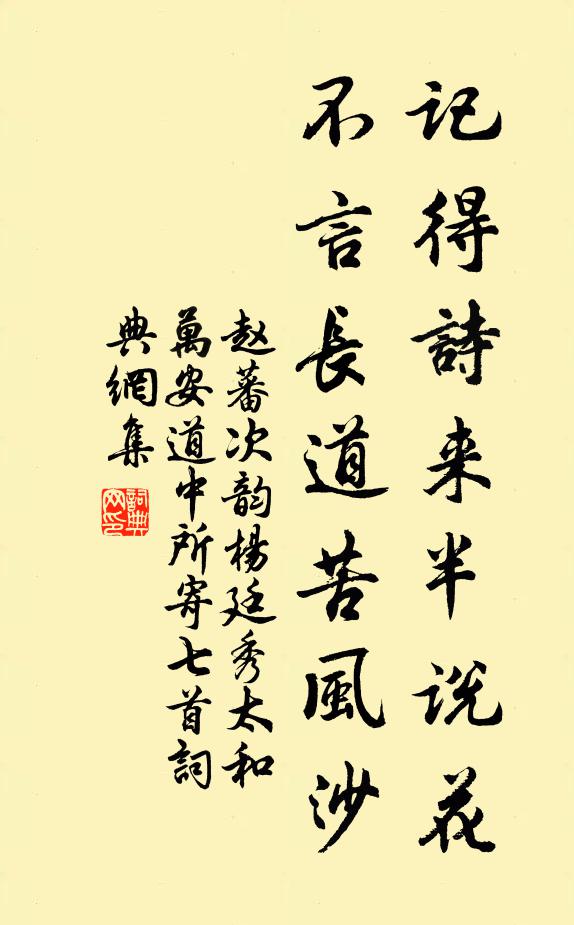 記得詩来半説花
不言長道苦風沙
赵蕃次韵楊廷秀太和
萬安道中所寄七首詞
典網集
詞典网印